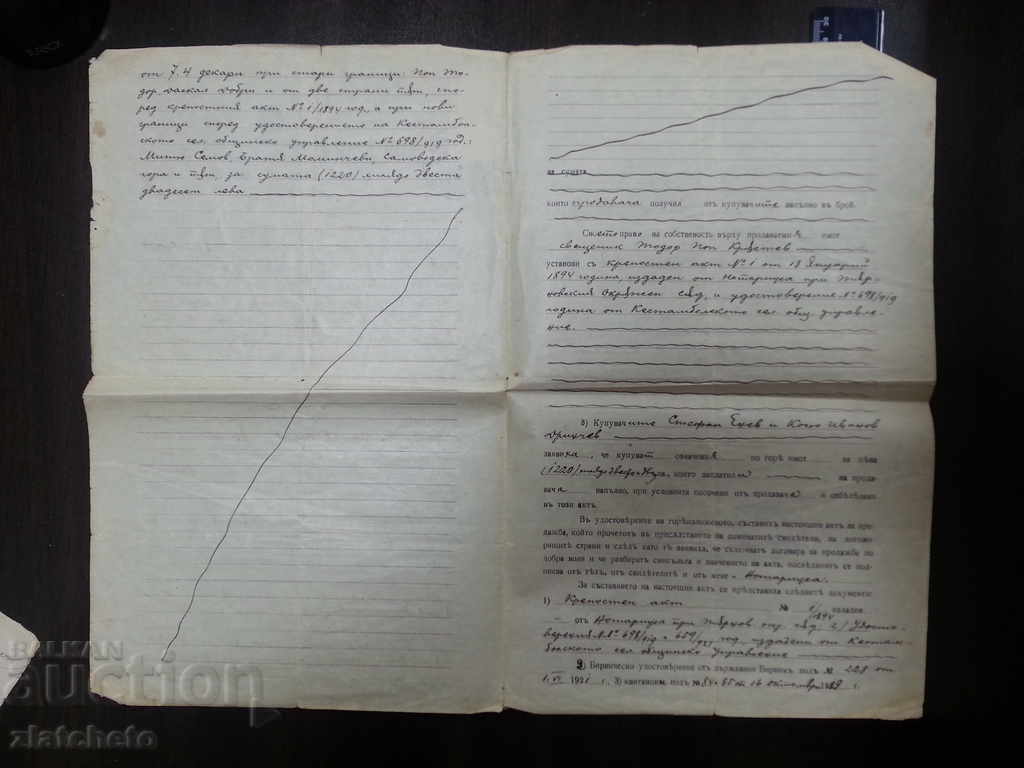 от 7,4 декари при стари граници: Поп То-
дор Даскал Добри и от две страни път, спо-
ред крепостния акт № 1/1894 год., а при нови
граници според удостоверението на Кестамбол-
ското сел. общинско управление № 698/919 год.:
Митю Семов, Братя Момничеви, Самоводска
гора и път, за сумата (1220) хиляда двеста
двадесет лева
на сумата
които продавача получил отъ купувачите напълно въ брой.
Своето право на собственость върху продавания имот
свещеник Тодор Поп Кръстев
установи съ крепостен акт № 1 от 18 Януарий
1894 година, издаден от Нотариуса при
Окръжен съд, и удостоверение № 698/919
година от Кестамболското сел. общ. управле-
ние.
в) Купувачите Стефан Енев и Кольо Иванов
заявиха, че купуват означения по горе имот за цена
(1220) която заплатили на прода-
вача напълно, при условията посочени отъ продавача и отбелѣзани
въ този актъ.
Въ удостоверение на горѣизложеното, съставихъ настоящия актъ за про-
дажба, който прочетохъ въ присѫтствието на поменатитѣ свидетели, на догово-
рившите страни и следъ като тѣ заявиха, че сключватъ договора за продажба по
добра воля и че разбиратъ смисъла и значението на акта, последниятъ се под-
писва отъ тѣхъ, отъ свидетелите и отъ мене – Нотариуса.
За съставянето на настоящия актъ се представиха следните документи:
1) Крепостен акт № 1/1894 издаден
отъ Нотариуса при окр. съд; 2/ Удосто-
верения № № 698/919 и 659/921 год. издадени от Кестам-
болското сел. общинско управление
2) Бирническо удостоверение от държавния Бирникъ подъ № 228 от
1.VI 1921 г. 3) квитанции, подъ № 84 и 85 от 16 октомврий г.
BALKAN
auction
zlatcheto